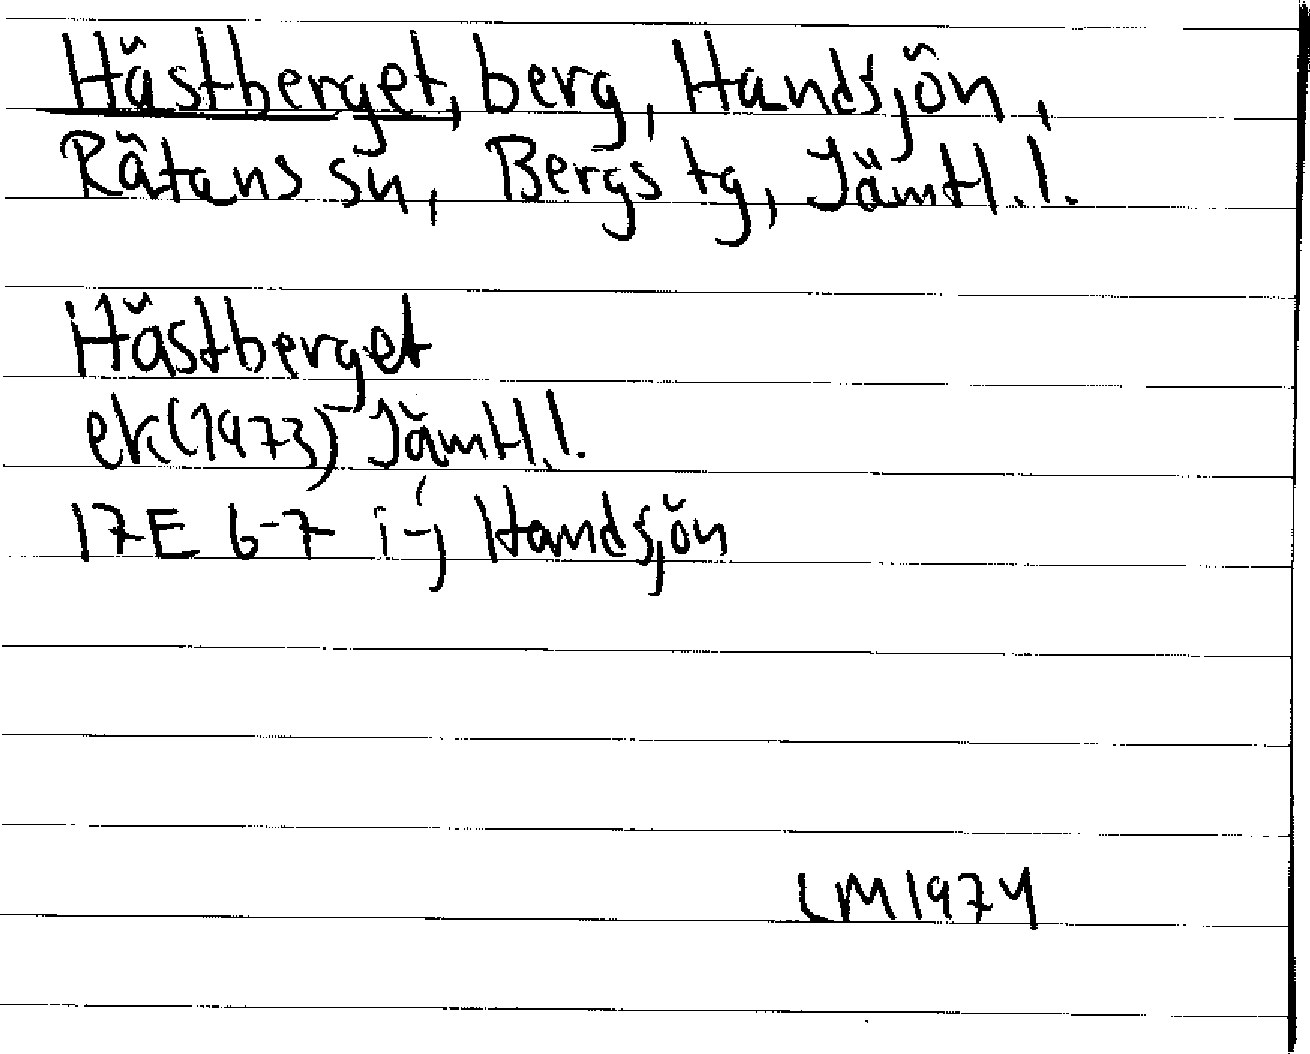 Hästberget, berg, Handsjön,
Rätans sn, Bergs tg, Jämtl.l.
Hästberget
ek(1973) Jämtl.l.
17E 6-7 i-j Handsjön
LM1974